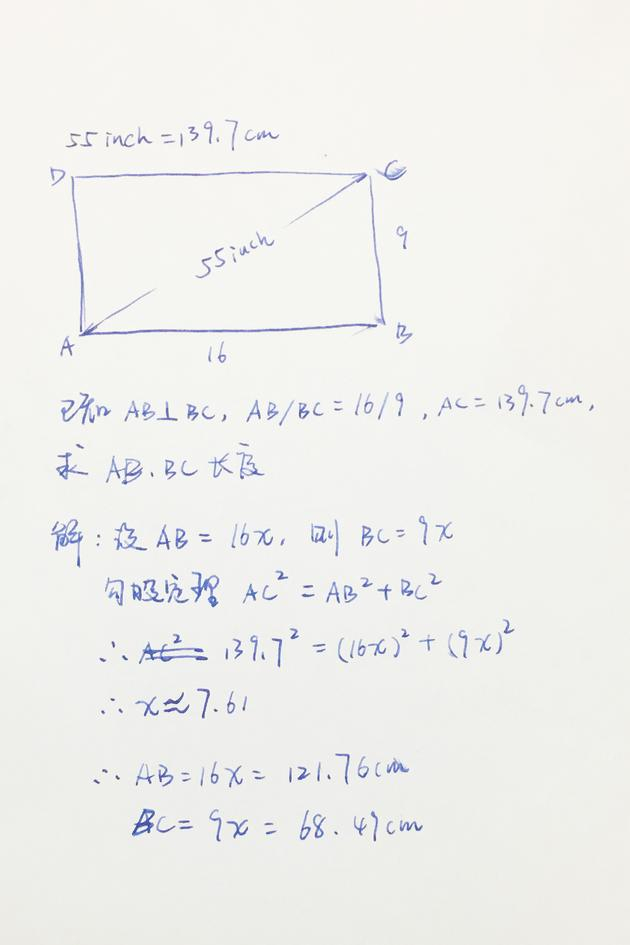 55 inch = 139.7 cm
D C
55 inch
9
A B
16
已知 AB⊥BC, AB/BC = 16/9, AC = 139.7cm,
求 AB、BC 长度
解: 设 AB = 16x, 则 BC = 9x
勾股定理 AC² = AB² + BC²
∴ AC² = 139.7² = (16x)² + (9x)²
∴ x ≈ 7.61
∴ AB = 16x = 121.76cm
BC = 9x = 68.49cm